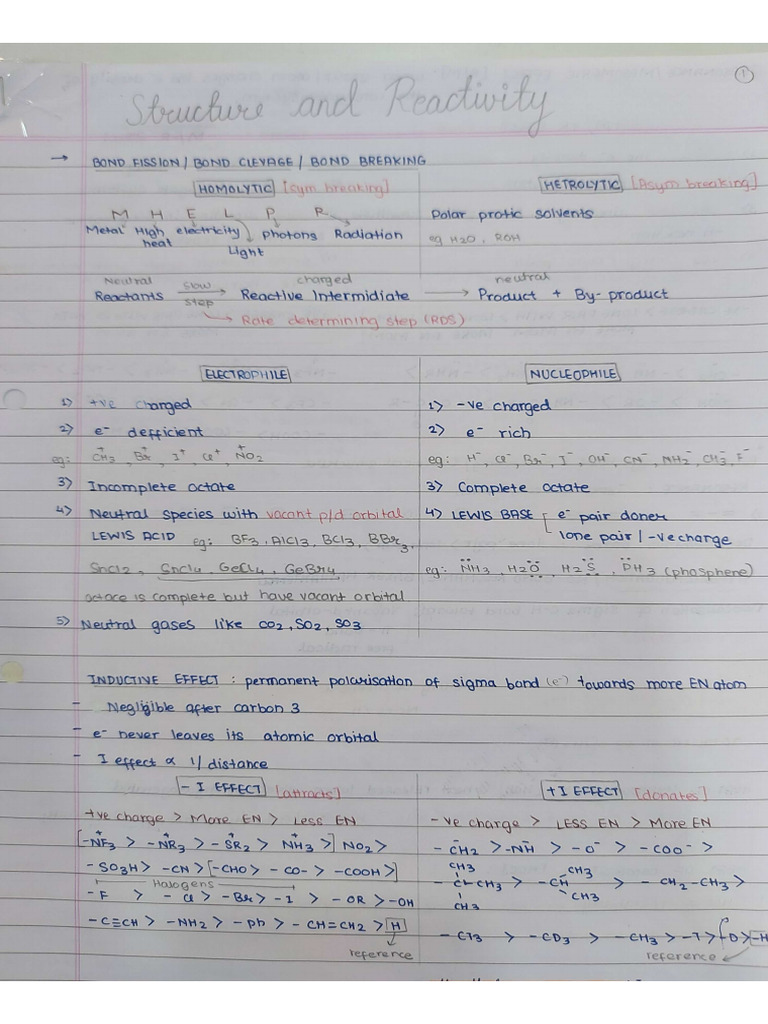 ①
Structure and Reactivity
→ BOND FISSION / BOND CLEVAGE / BOND BREAKING
HOMOLYTIC [sym breaking]
M H E L P R
Metal High heat electricity Light photons Radiation
HETROLYTIC [Asym breaking]
Polar protic solvents
eg H2O, ROH
Neutral charged neutral
Reactants slow step → Reactive Intermidiate → Product + By-product
→ Rate determining step (RDS)
ELECTROPHILE
1) +ve charged
2) e⁻ defficient
eg: C⁺H3, Br⁺, I⁺, Cl⁺, N⁺O2
3) Incomplete octate
4) Neutral species with vacant p/d orbital
LEWIS ACID eg: BF3, AlCl3, BCl3, BBr3,
SnCl2, SnCl4, GeCl4, GeBr4
octace is complete but have vacant orbital
5) Neutral gases like CO2, SO2, SO3
NUCLEOPHILE
1) -ve charged
2) e⁻ rich
eg: H⁻, Cl⁻, Br⁻, I⁻, OH⁻, CN⁻, NH2⁻, CH3⁻, F⁻
3) Complete octate
4) LEWIS BASE e⁻ pair doner
lone pair / -ve charge
eg: N̈H3, H2Ö, H2S̈, P̈H3 (phosphene)
INDUCTIVE EFFECT : permanent polarisation of sigma bond (e⁻) towards more EN atom
- Negligible after carbon 3
- e⁻ never leaves its atomic orbital
- I effect ∝ 1/distance
- I EFFECT [attracts]
+ve charge > More EN > Less EN
[-N⁺F3 > -N⁺R3 > -S⁺R2 > N⁺H3 >] NO2 >
- SO3H > -CN > [-CHO > - CO- > -COOH >]
Halogens
- F > - Cl > - Br > - I > - OR > -OH
- C≡CH > - NH2 > - Ph > - CH=CH2 > H
reference
+ I EFFECT [donates]
- ve charge > LESS EN > More EN
- C⁻H2 > -N⁻H > - O⁻ > - COO⁻ >
CH3
- C-CH3 > - CH CH3 > - CH2-CH3 >
CH3 CH3
- CT3 > - CD3 > - CH3 > -T > D > -H
reference